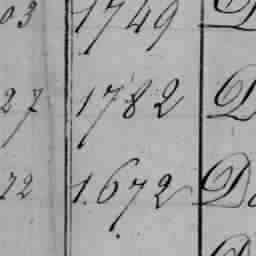 03 1749 D
27 1782 D
72 1.672 Do